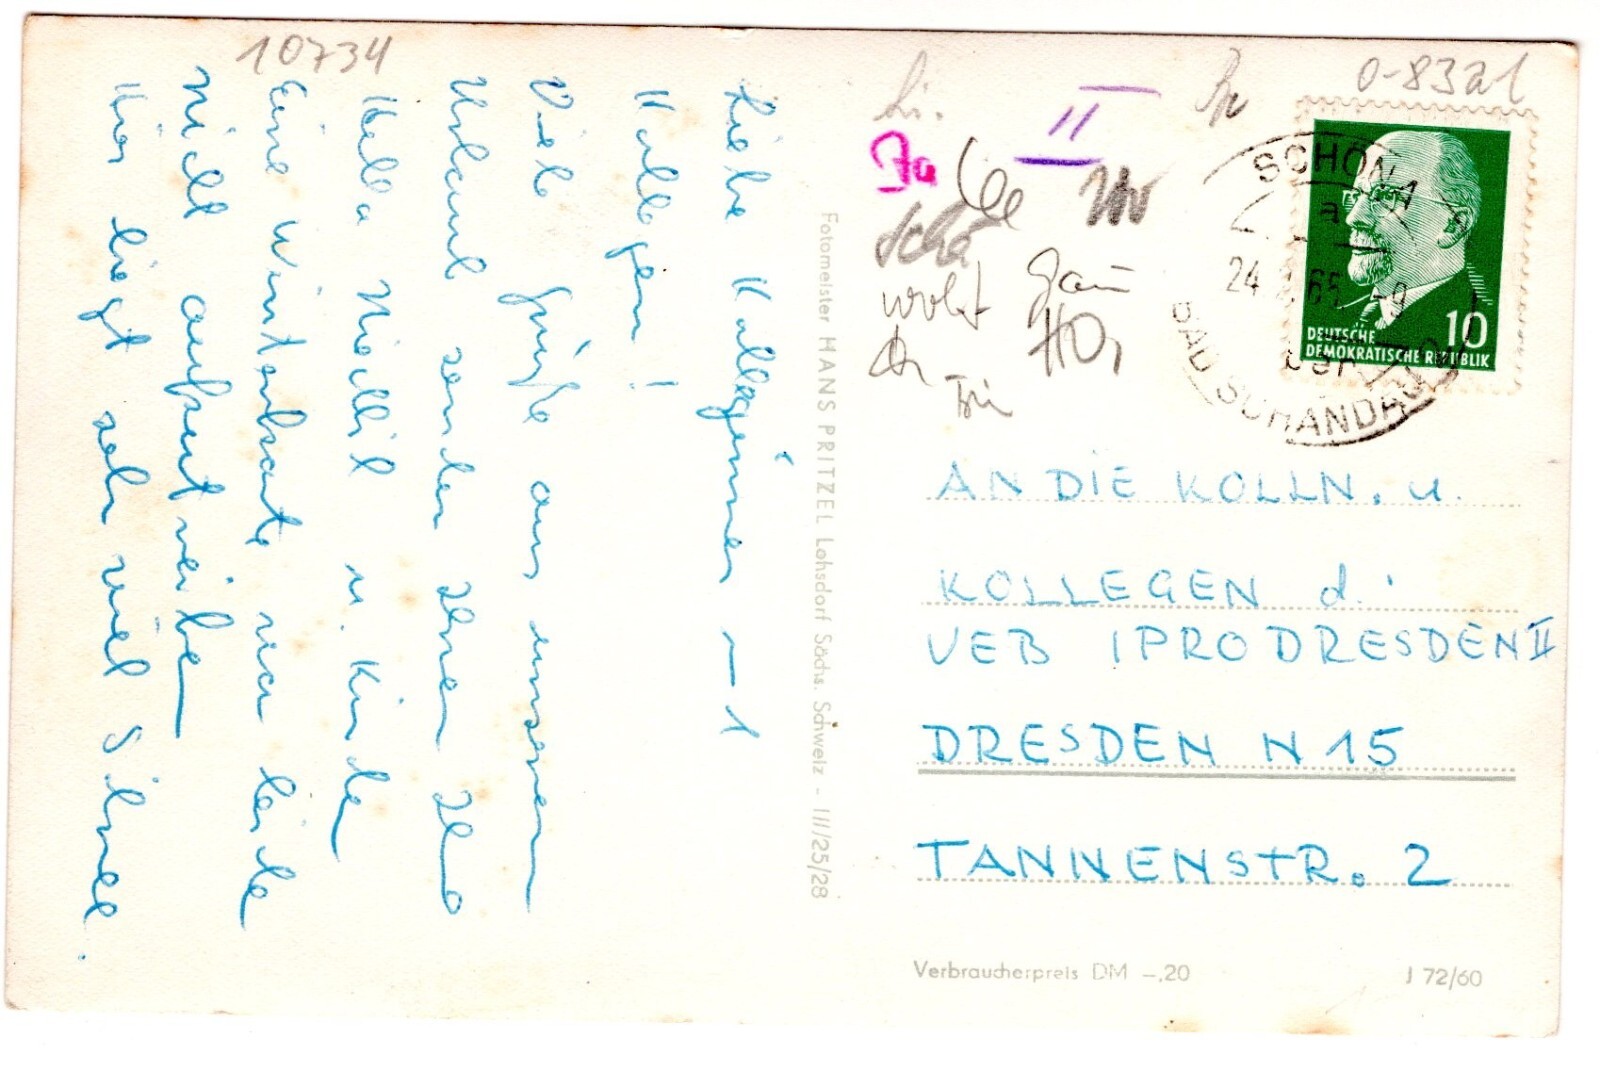 10734
Liebe Kolleginnen u.
Kollegen!
Viele Grüße aus unserem
Urlaub senden Ihnen Ihre
u. Kinder
Eine Winterkarte war leider
nicht aufzutreiben
Hier liegt sehr viel Schnee.
Fotomeister HANS PRITZEL Lohsdorf Sächs. Schweiz - III/25/28
0-8321
Li.
II
Ja
Scha
Wolf
SCHÖNA
a
24 65 -9
über
BAD SCHANDAU
DEUTSCHE
DEMOKRATISCHE REPUBLIK
10
AN DIE KOLLN. u.
KOLLEGEN d.
VEB IPRO DRESDEN II
DRESDEN N 15
TANNENSTR. 2
Verbraucherpreis DM -,20
J 72/60